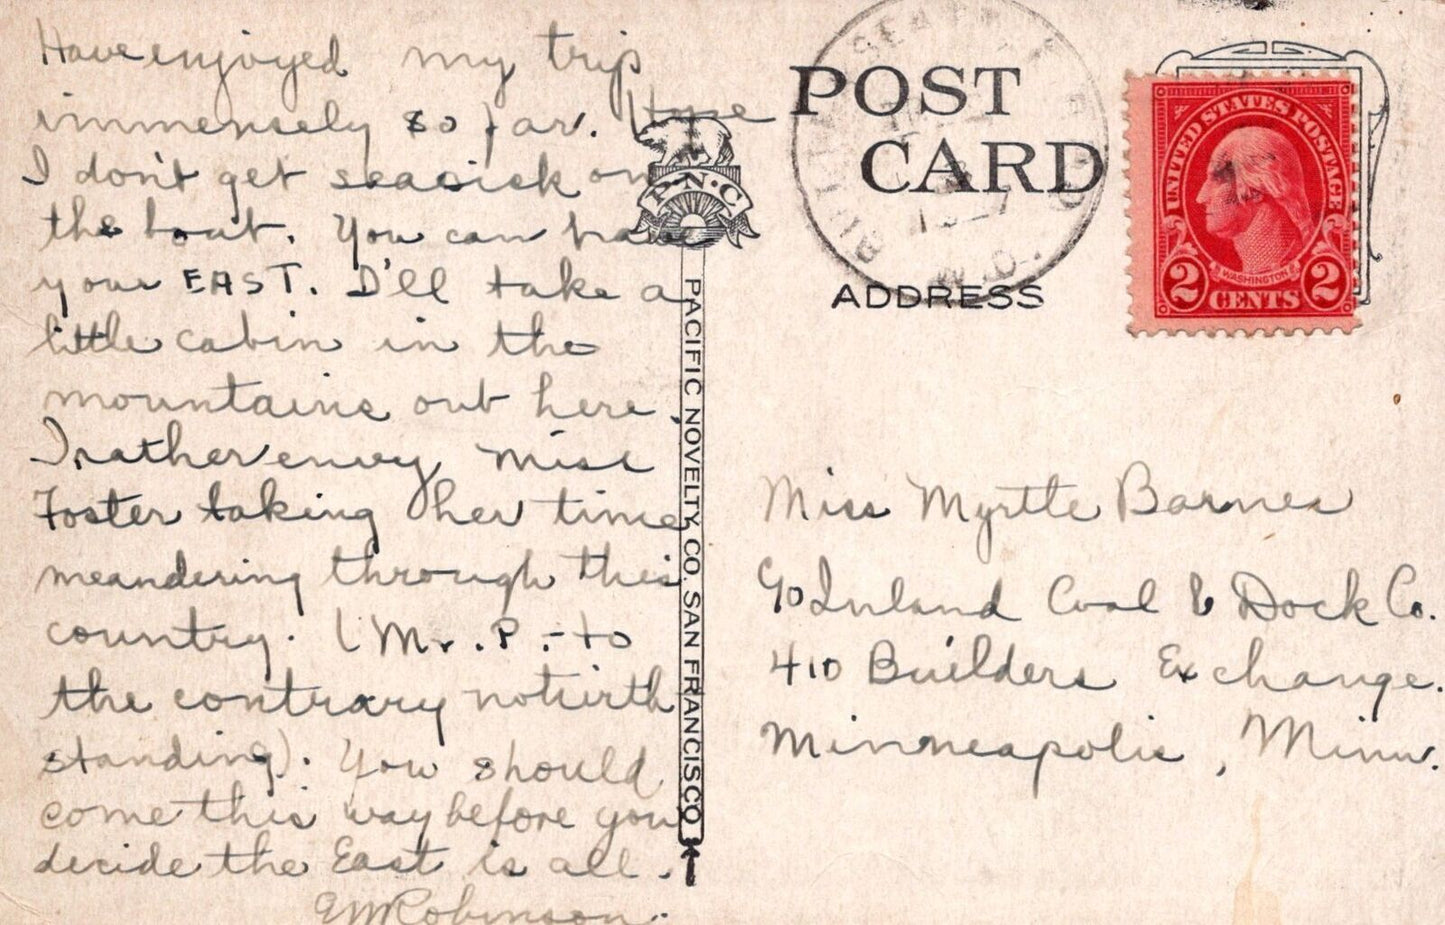 Have enjoyed my trip
immensely so far. Hope
I don't get seasick on
the boat. You can have
your EAST. I'll take a
little cabin in the
mountains out here.
I rather envy Miss
Foster taking her time
meandering through this
country. (Mr. P. - to
the contrary notwith
standing). You should
come this way before you
decide the East is all.
EMRobinson.
P.N.C
PACIFIC NOVELTY CO. SAN FRANCISCO
POST
CARD
ADDRESS
UNITED STATES POSTAGE
WASHINGTON
2 CENTS 2
Miss Myrtle Barnes
c/o Inland Coal & Dock Co.
410 Builders Exchange.
Minneapolis, Minn.